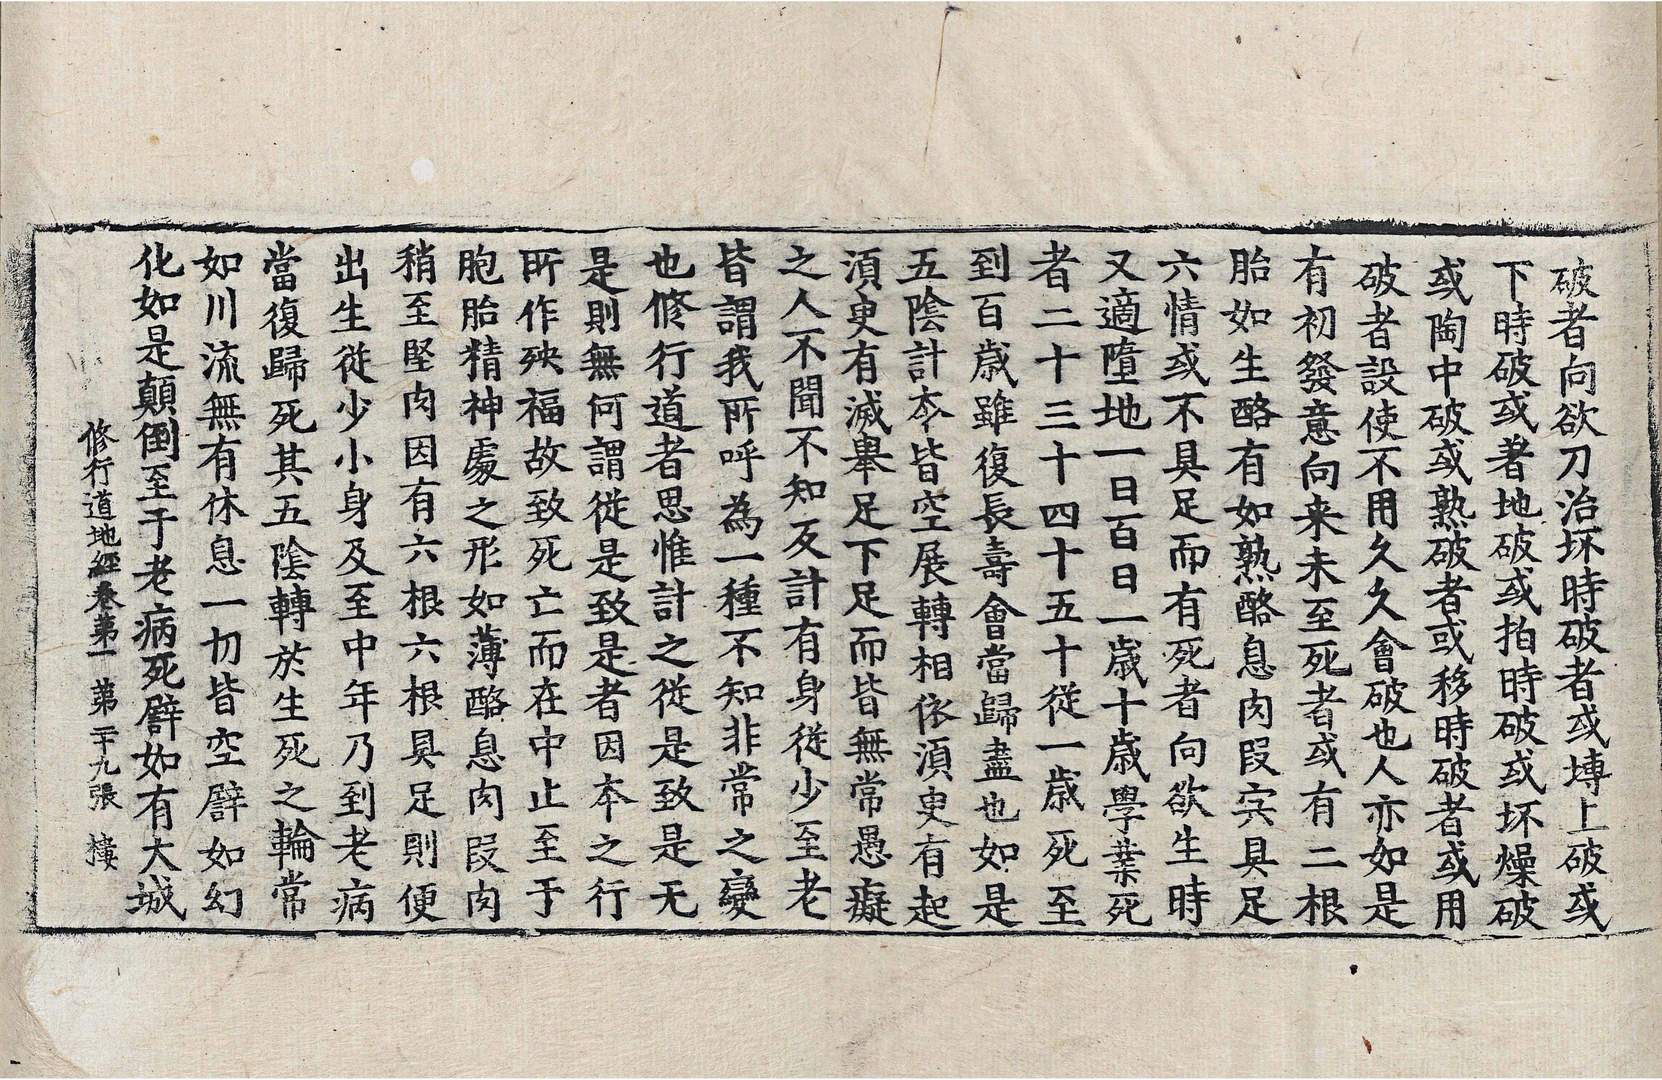 破者向欲刀治坏時破者或塼上破或
下時破或著地破或拍時破或坏燥破
或陶中破或熟破者或移時破者或用
破者設使不用久久會破也人亦如是
有初發意向来未至死者或有二根
胎如生酪有如熟酪息肉段宍具足
六情或不具足而有死者向欲生時
又適墮地一日百日一歳十歳學業死
者二十三十四十五十從一歳死至
到百歳雖復長壽會當歸盡也如是
五陰計夲皆空展轉相依湏㬰有起
湏㬰有滅舉足下足而皆無常愚癡
之人不聞不知反計有身從少至老
皆謂我所呼為一種不知非常之變
也修行道者思惟計之從是致是无
是則無何謂從是致是者因夲之行
所作殃福故致死亡而在中止至于
胞胎精神處之形如薄酪息肉段肉
稍至堅肉因有六根六根具足則便
出生從少小身及至中年乃到老病
當復歸死其五陰轉於生死之輪常
如川流無有休息一切皆空譬如幻
化如是顛倒至于老病死譬如有大城
修行道地經卷第一 第二十九張